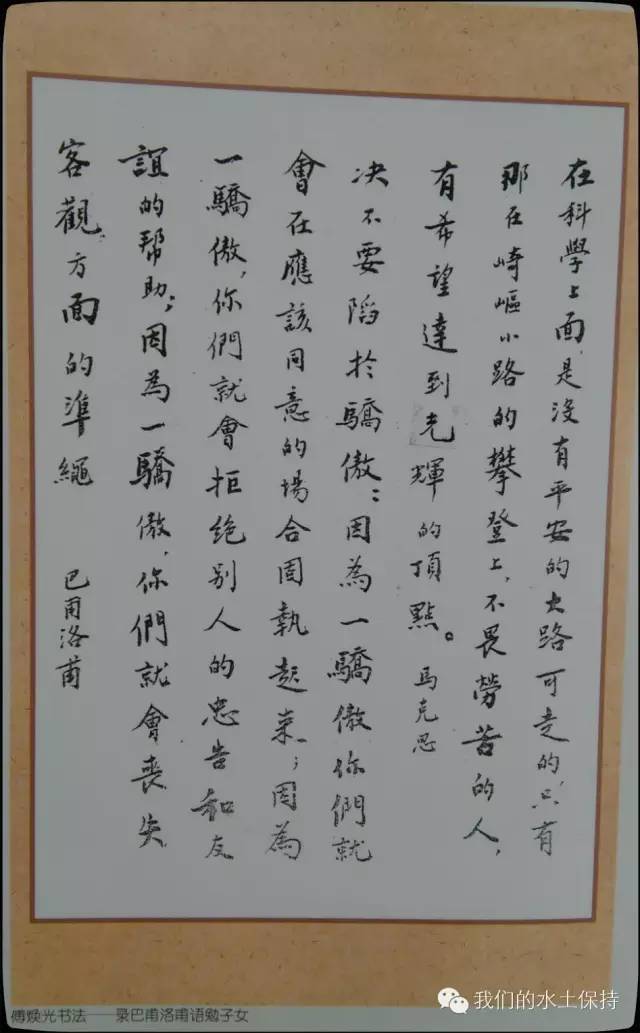 在科學上面是沒有平安的大路可走的,只有
那在崎嶇小路的攀登上,不畏勞苦的人,
有希望達到光輝的頂點。馬克思
決不要陷於驕傲;因為一驕傲你們就
會在應該同意的場合固執起來;因為
一驕傲,你們就會拒絕別人的忠告和友
誼的幫助;因為一驕傲,你們就會喪失
客觀方面的準繩 巴甫洛甫
傅焕光书法——录巴甫洛甫语勉子女
我们的水土保持